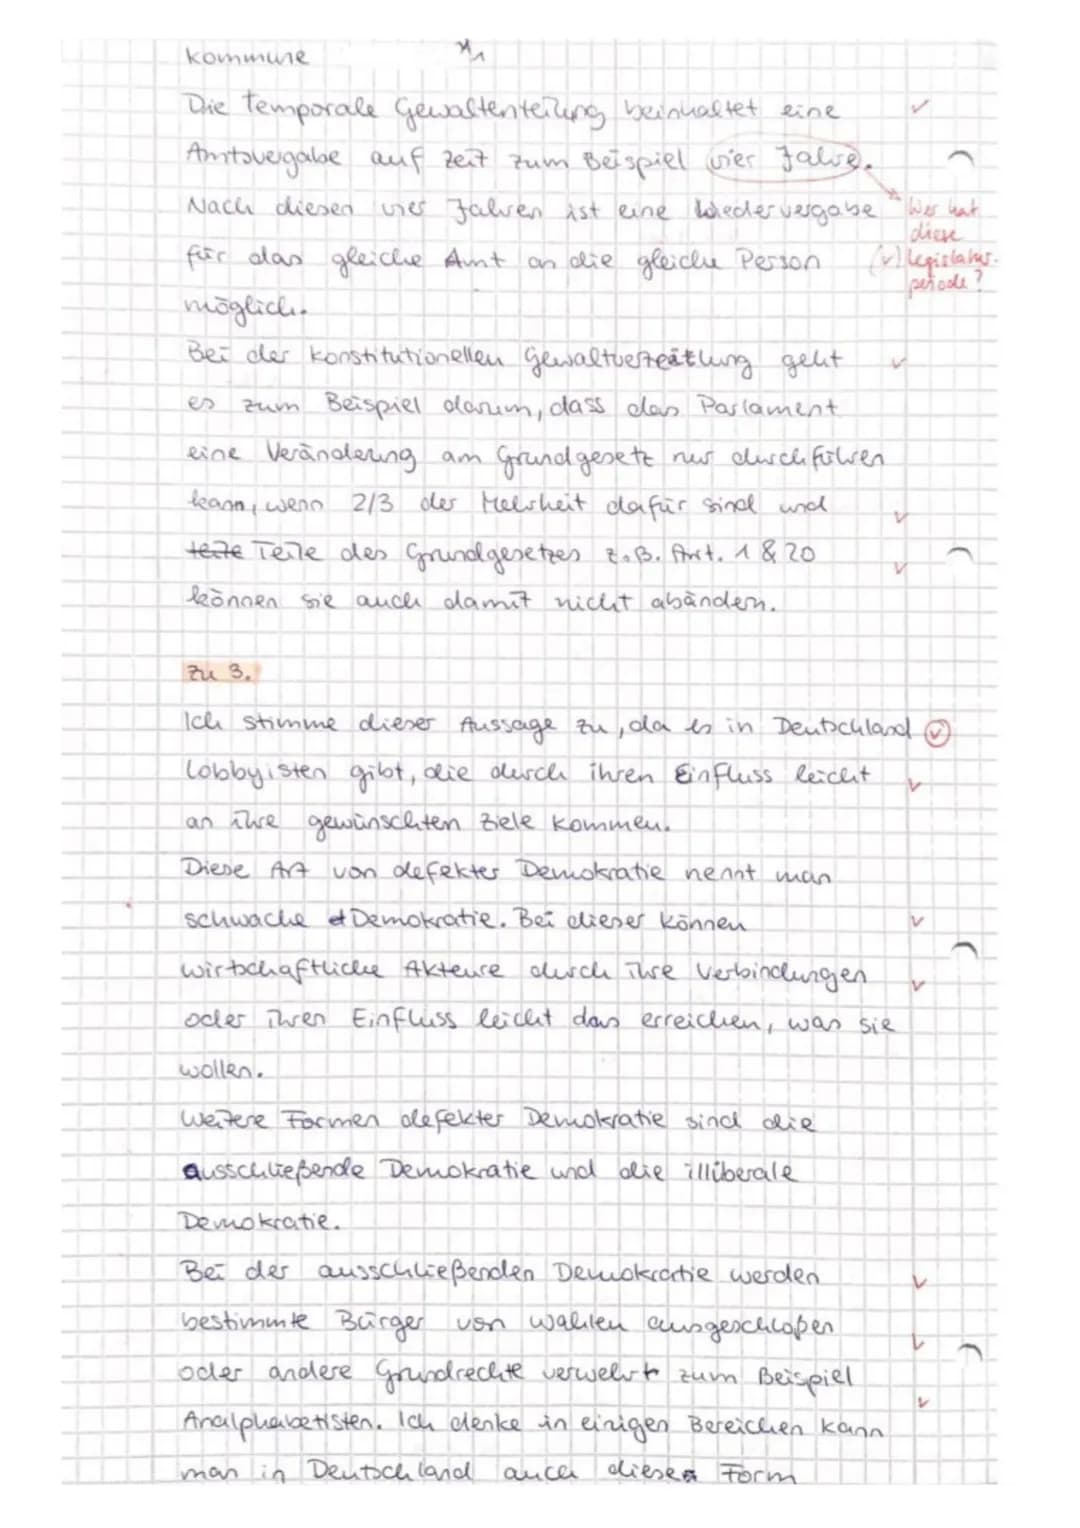 Kommune
Die temporale Gewaltenteilung beinhaltet eine
Amtsvergabe auf Zeit zum Beispiel vier Jahre.
Nach diesen vier Jahren ist eine Wiedervergabe
Wer hat
diese
für das gleiche Amt an die gleiche Person
(✓) Legislatur-
periode?
möglich.
Bei der konstitutionellen Gewaltverteilung geht
es zum Beispiel darum, dass das Parlament
eine Veränderung am Grundgesetz nur durchführen
kann, wenn 2/3 der Mehrheit dafür sind und
teile Teile des Grundgesetzes z.B. Art. 1 & 20
können sie auch damit nicht abändern.
zu 3.
Ich stimme dieser Aussage zu, da es in Deutschland
Lobbyisten gibt, die durch ihren Einfluss leicht
an ihre gewünschten Ziele kommen.
Diese Art von defekter Demokratie nennt man
schwache Demokratie. Bei dieser können
wirtschaftliche Akteure durch ihre Verbindungen
oder ihren Einfluss leicht das erreichen, was sie
wollen.
Weitere Formen defekter Demokratie sind die
ausschließende Demokratie und die illiberale
Demokratie.
Bei der ausschließenden Demokratie werden
bestimmte Bürger von Wahlen ausgeschloßen
oder andere Grundrechte verwehrt zum Beispiel
Analphabetisten. Ich denke in einigen Bereichen kann
man in Deutschland auch diese Form